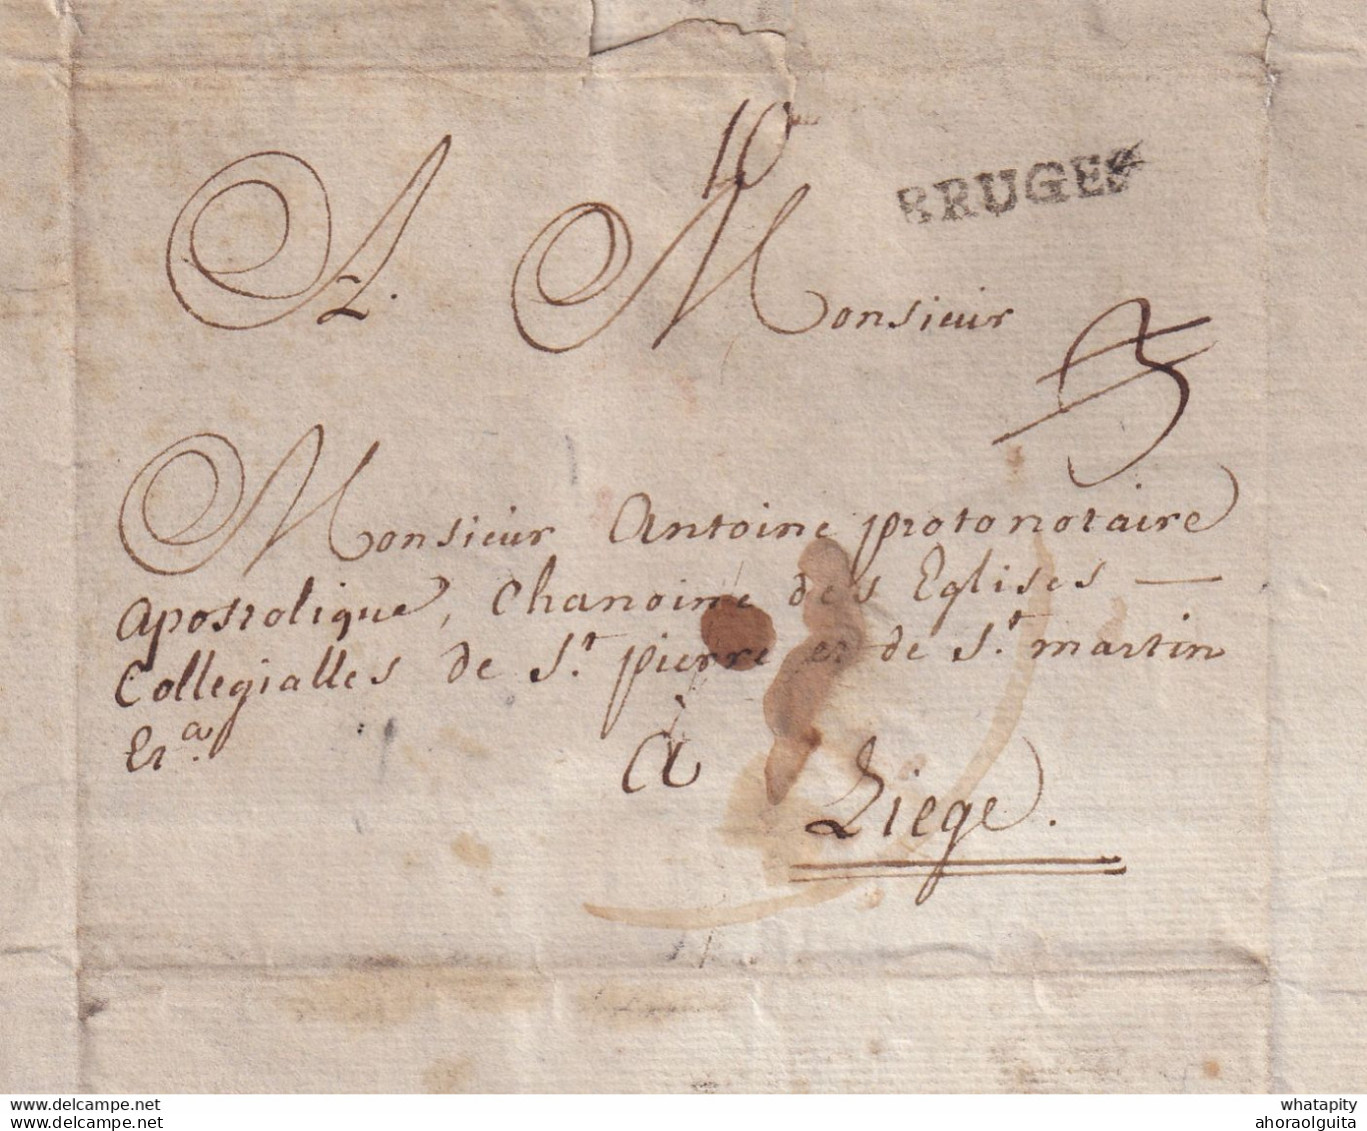 10
BRUGES
A. Monsieur
Monsieur Antoine protonotaire
apostolique, Chanoine des Eglises —
Collegialles de St. pierre et de St. martin
Et.a
a
Liege.
www.delcampe.net
whatapity
ahoraolguita